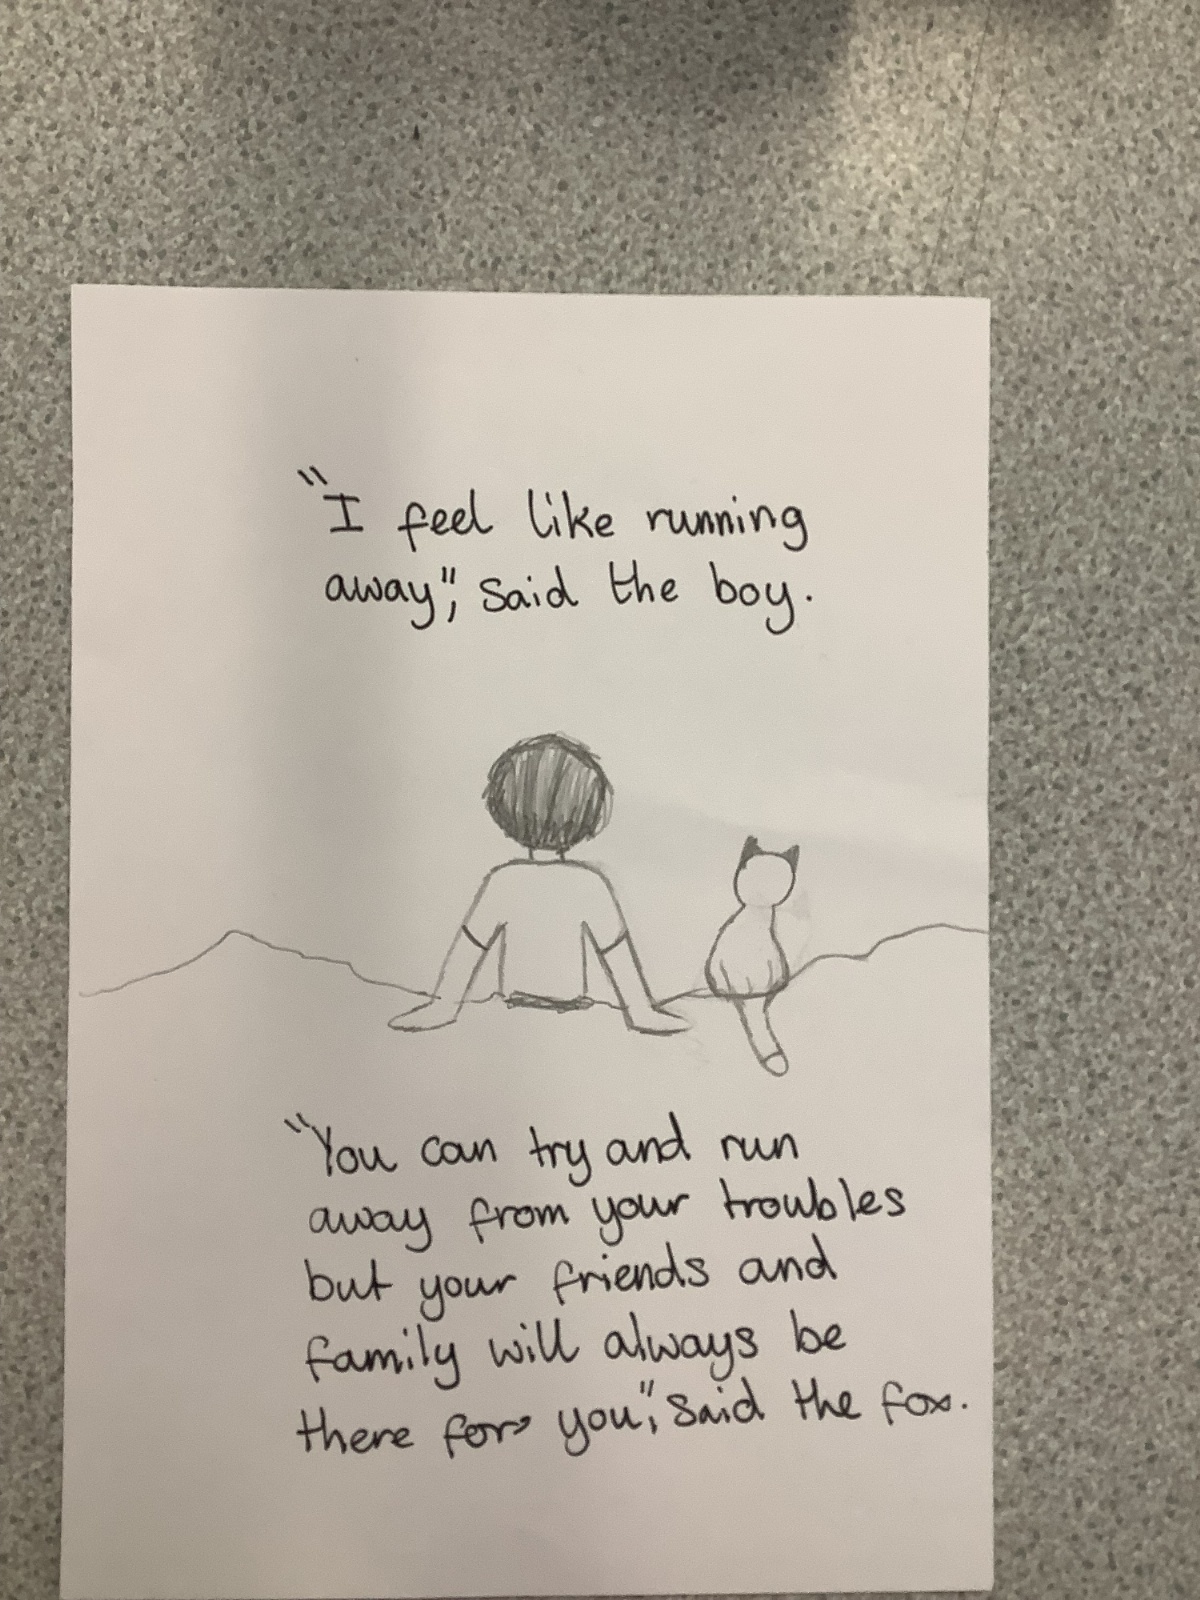 "I feel like running
away", said the boy.
"You can try and run
away from your troubles
but your friends and
family will always be
there for you", said the fox.